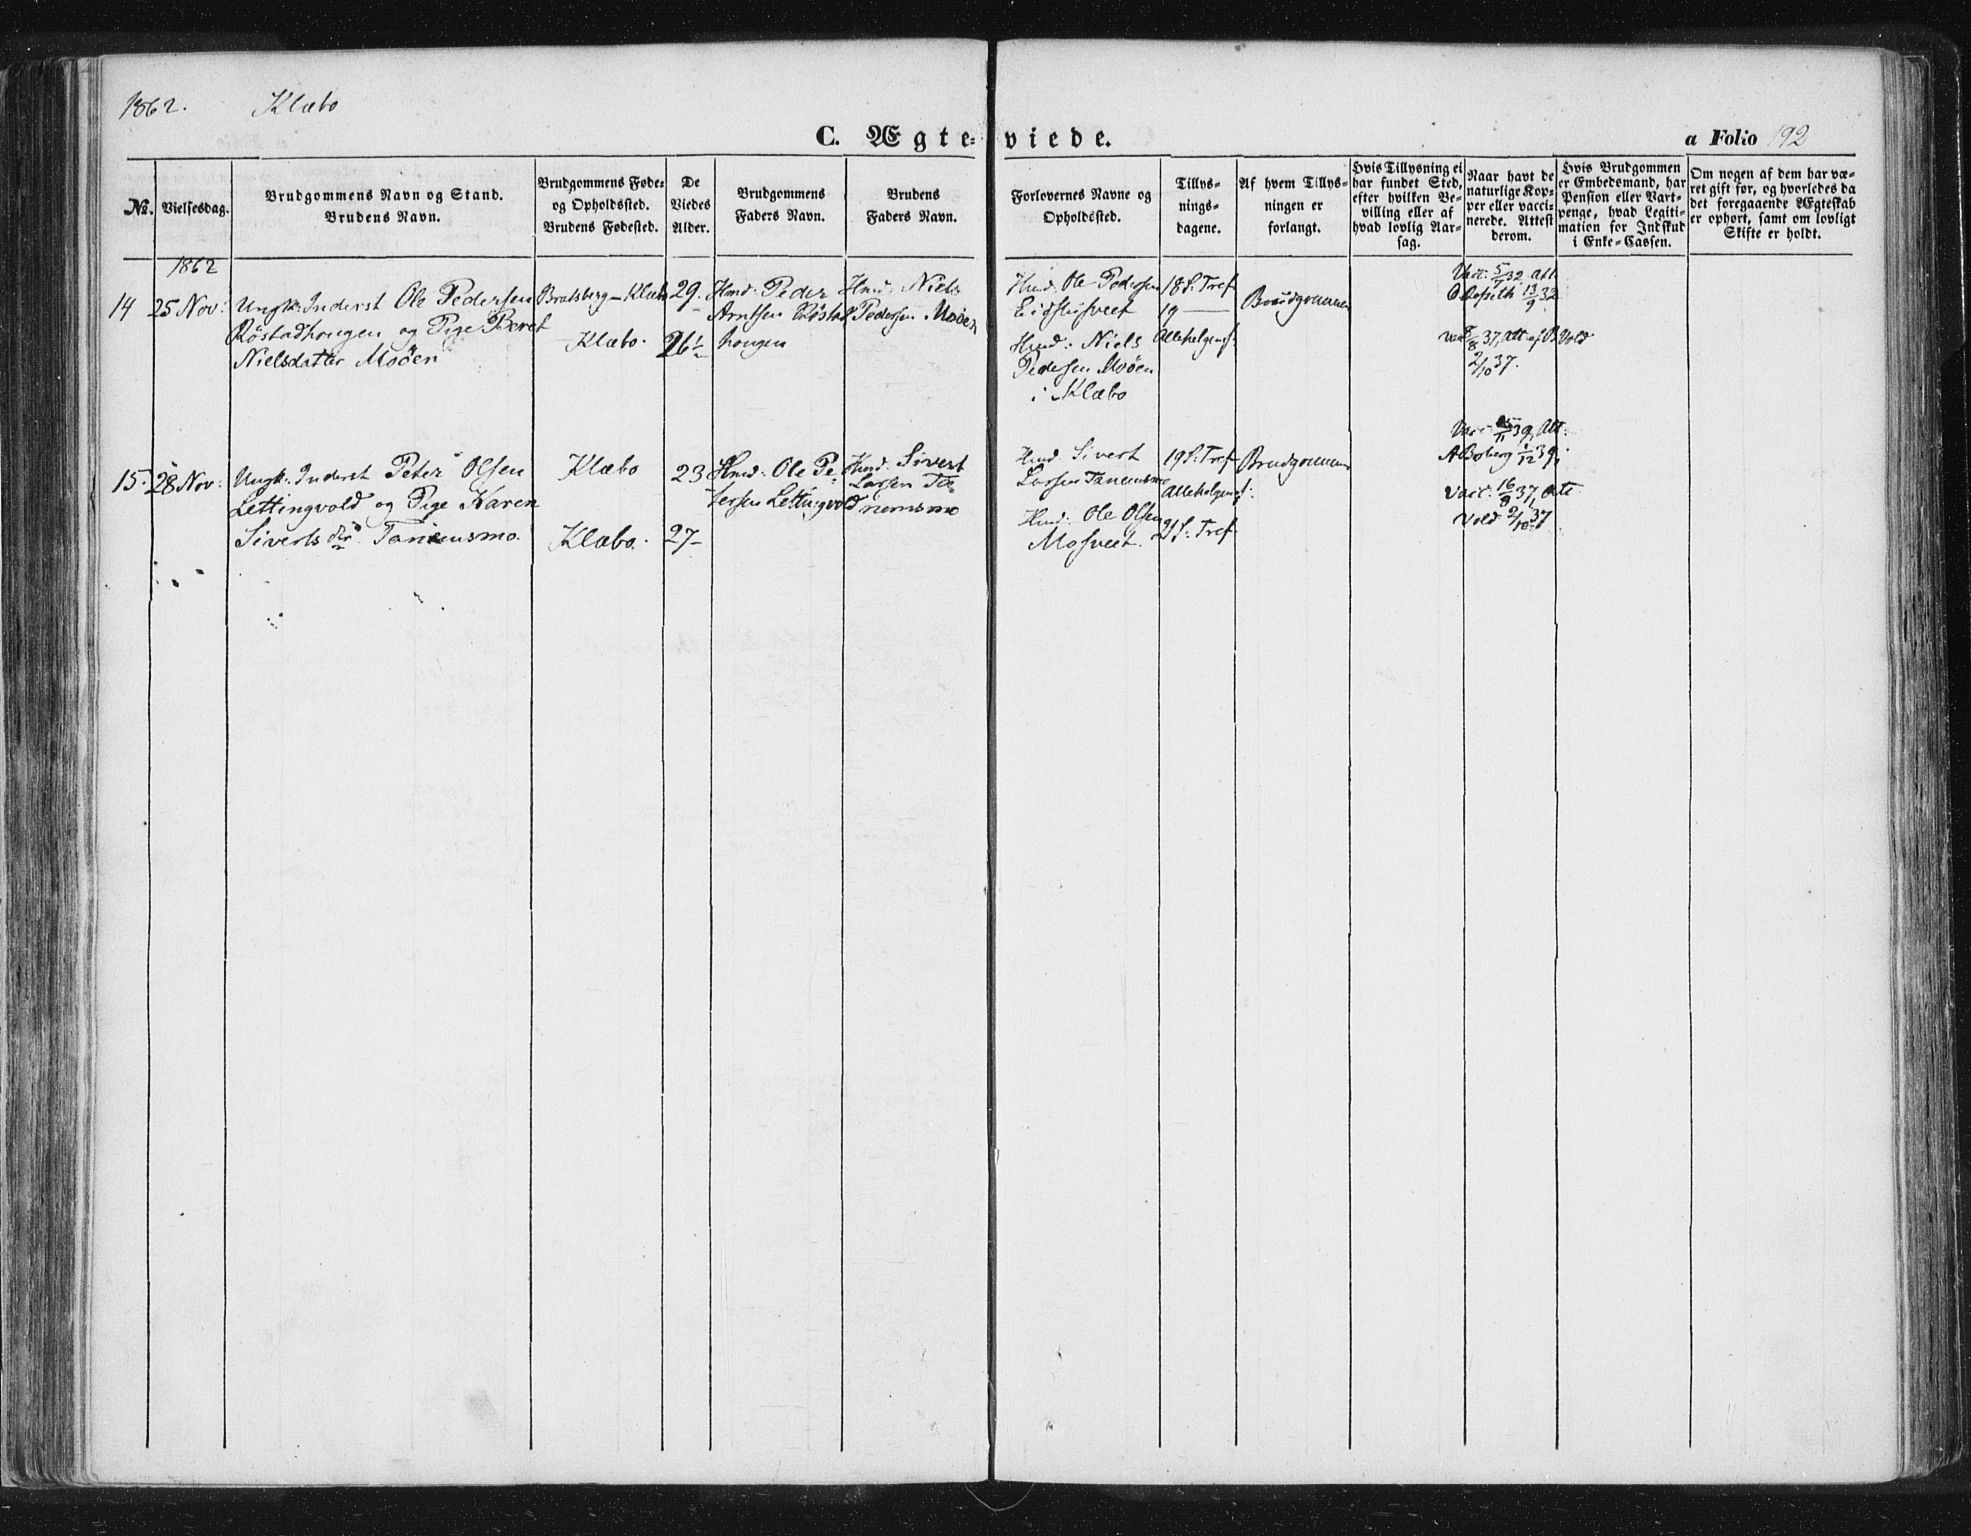 1862. Klæbo
C. Ægte- viede. a Folio 192
No.
Vielsesdag.
Brudgommens Navn og Stand.
Brudens Navn.
Brudgommens Føde-
og Opholdssted.
Brudens Fødested.
De
Viedes
Alder.
Brudgommens
Faders Navn.
Brudens
Faders Navn.
Forlovernes Navne og
Opholdssted.
Tillys-
nings-
dagene.
Af hvem Tillys-
ningen er
forlangt.
Hvis Tillysning ei
har fundet Sted,
efter hvilken Be-
villing eller af
hvad lovlig Aar-
sag.
Naar havt de
naturlige Kop-
per eller vacci-
nerede. Attest
derom.
Hvis Brudgommen
er Embedsmand, har
Pension eller Vart-
penge, hvad Legiti-
mation for Indskud
i Enke-Cassen.
Om nogen af dem har væ-
ret gift før, og hvorledes da
det foregaaende Ægteskab
er ophørt, samt om lovligt
Skifte er holdt.
1862
14
25 Nov:
Ungk: Inderst Ole Pedersen
Røstadhougen og Pige Beret
Nielsdatter Moøen
Bratsberg - Klæbo
Klæbo.
29.
26½
Hmd: Peder
Arntsen Røstad
hougen
Hmd: Niels
Pedersen Moøen
Hmd: Ole Pedersen
Eidstusveet
Hmd: Niels
Pedersen Moøen
i Klæbo
18 S. Tref
19 —
Allehelgensf:
Brudgommen
Vacc: 5/7 32. Att
13/9 32
Vacc 8/8 37, Att af B. Vold
2/10 37.
15.
28 Nov:
Ungk: Inderst Peter Olsen
Lettingvold og Pige Karen
Siverts dtr Tanemsmo.
Klæbo
Klæbo.
23
27
Hmd: Ole Pe-
tersen Lettingvold
Hmd: Sivert
Larsen Ta-
nemsmo
Hmd: Sivert
Larsen Tanemsmo
Hmd: Ole Olsen
Mosveet.
19 S. Tref
Allehelgensf:
21 S: Tref
Brudgommen
Vacc: /11 39, Att:
A Boberg 1/12 39,
Vacc: 16/8 37, Atte
Vold 2/10 37